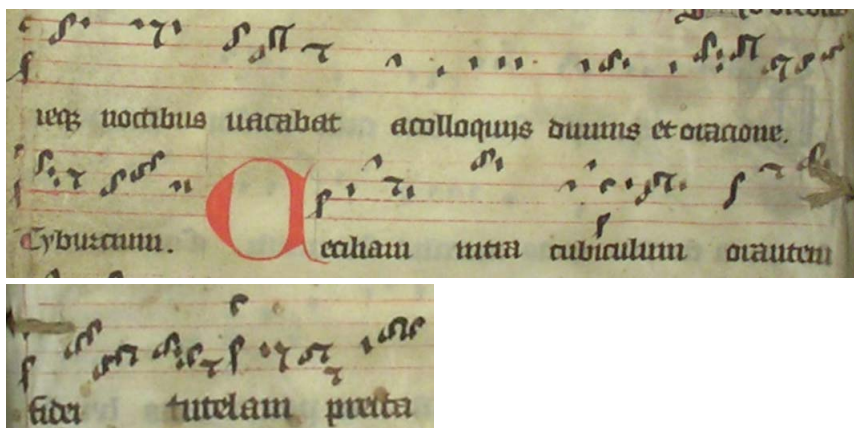 ieqꝫ noctibus uacabat acolloquiis diuinis et oracione.
Tyburcium. Ceciliam intra cubiculum orantem
fidei tutelam